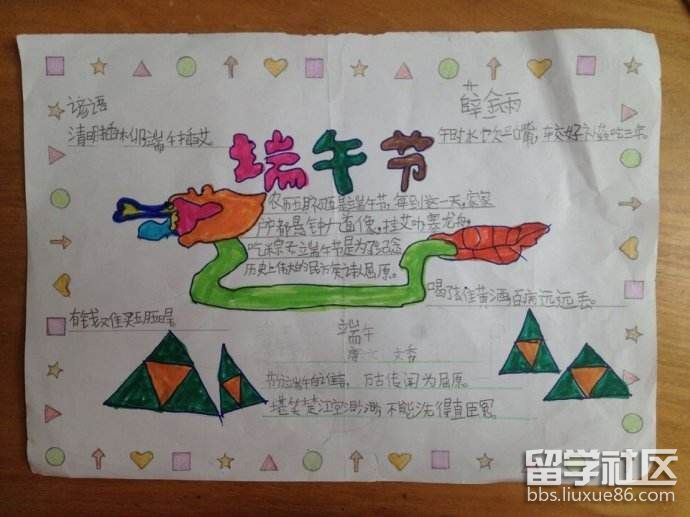 谚语
薛
清明插柳端午插艾
午时水饮一嘴,较好补药吃三年
端午节
农历五月初五是端午节,每到这一天,家家
户都悬钟馗像,挂艾叶赛龙舟,
吃粽子,端午节是为了纪念
历史上伟大的民族诗人屈原。
喝雄黄酒百病远远丢。
有钱难买五月五旱
端午
唐 文秀
节分端午自谁言,万古传闻为屈原。
堪笑楚江空渺渺,不能洗得直臣冤。
留学社区
bbs.liuxue86.com